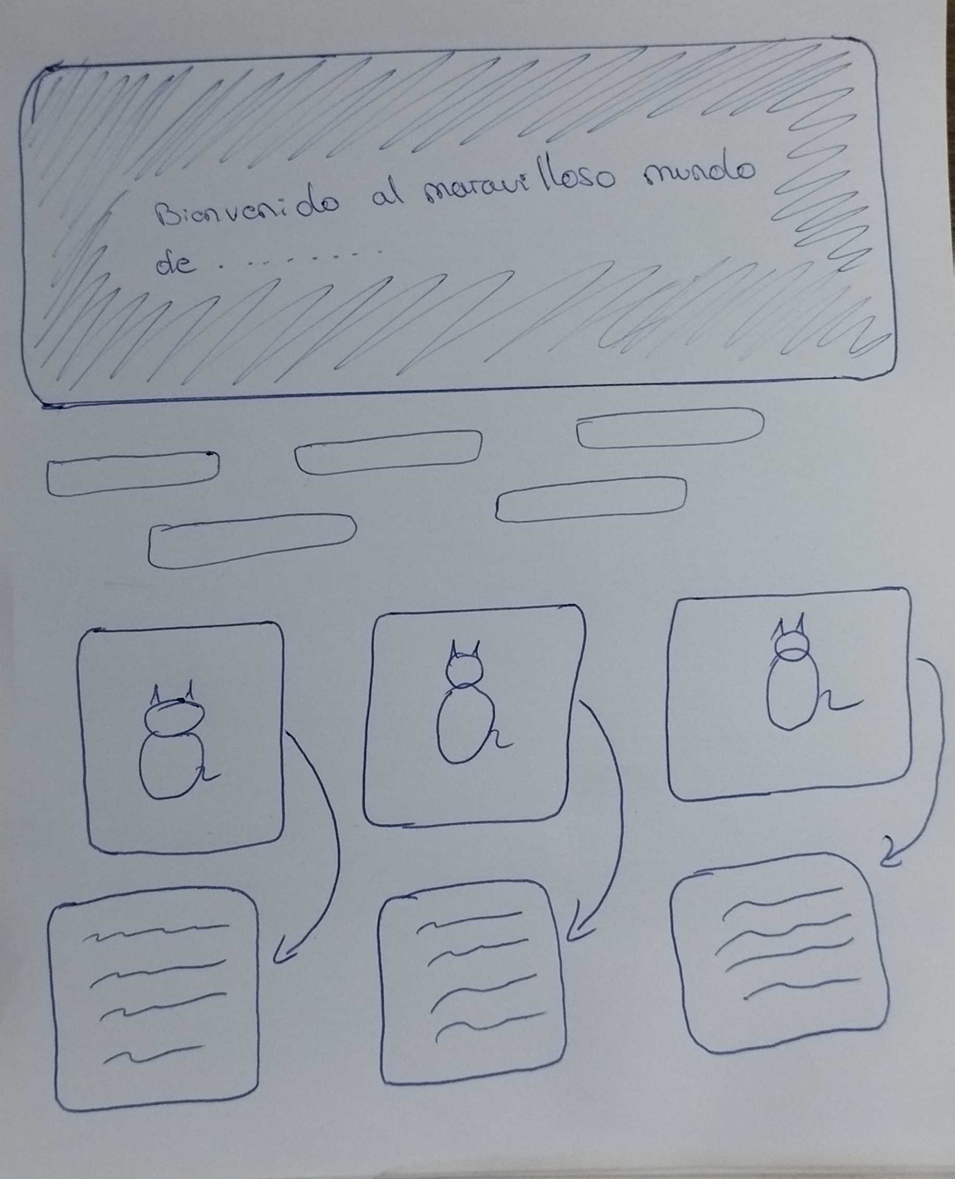 Bienvenido al maravilloso mundo
de . . . . . . . .